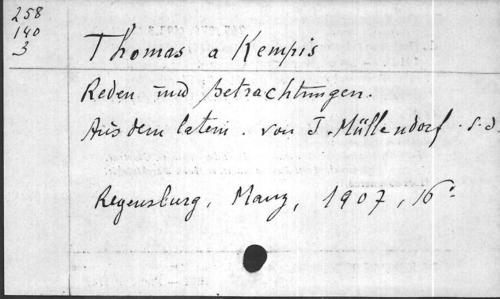 258
140
3
Thomas a Kempis
Reden und Betrachtungen.
Aus dem latein. von J. Müllendorf. S.J.
Regensburg, Manz, 1907, 16°